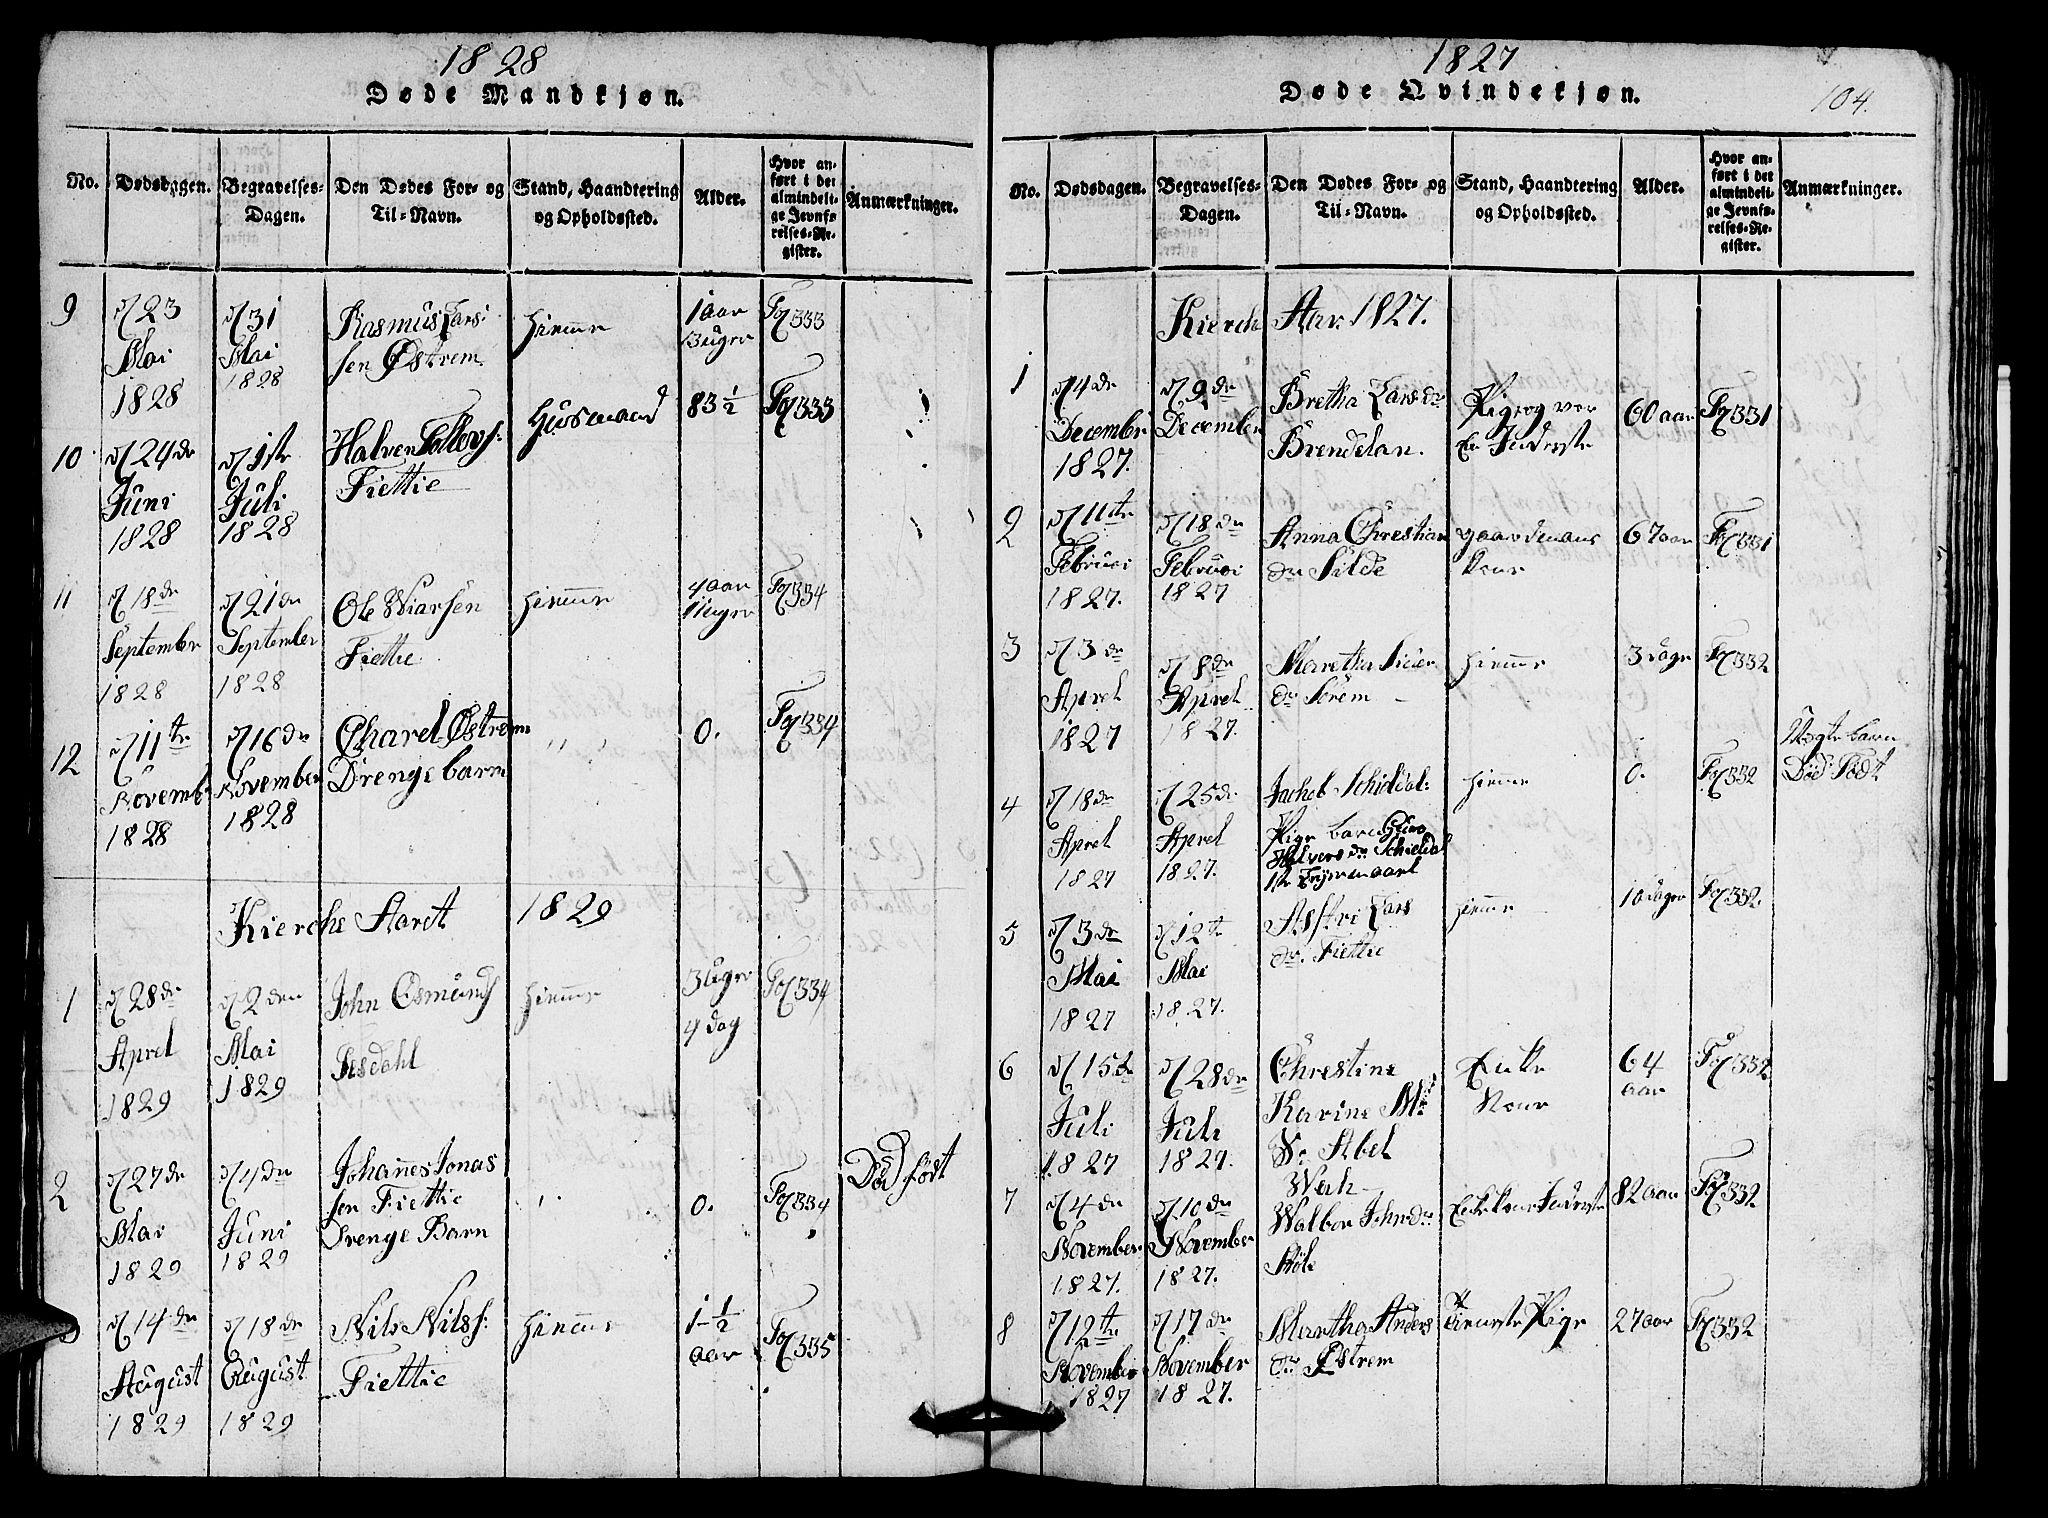 1828
Døde Mandkjøn.
No.
Dødsdagen.
Begravelses-
Dagen.
Den Dødes For- og
Til-Navn.
Stand, Haandtering
og Opholdssted.
Alder.
Hvor an-
ført i det
almindeli-
ge Jevnfø-
relses-Re-
gister.
Anmærkninger.
9
23
Mai
1828
31
Mai
1828
Rasmus Lars:
sen Østrem
hiemme
1 aar
13 uger
Fol 333
10
24de
Juni
1828
1ste
Juli
1828
Halven Tollevs:
Fiettie
Husmand
83 1/2
Fol 333
11
18de
September
1828
21de
September
1828
Ole Wiarsen
Fiettie
hiemme
4 aar
11 uger
Fol 334
12
11te
Novemb
1828
16de
November
1828
Charel Østrem
Drenge barn
0.
Fol 334
Kierche Aaret 1829
1
28de
Aprel
1829
2den
Mai
1829
John Osmunds
Sesdahl
hiemme
3 uger
4 dag
Fol 334
2
27de
Mai
1829
4de
Juni
1829
Johannes Jonas
sen Fiettie
Drenge Barn
0.
Fol 334
Død født
3
14de
August
1829
18de
August
1829
Nils Nilss:
Fiettie
hiemme
1 1/2
aar
Fol 335
1827
Døde Qvindekjøn.
104.
No.
Dødsdagen.
Begravelses-
Dagen.
Den Dødes For- og
Til-Navn.
Stand, Haandtering
og Opholdssted.
Alder.
Hvor an-
ført i det
almindeli-
ge Jevnfø-
relses-Re-
gister.
Anmærkninger.
Kierche Aar. 1827.
1
4de
December
1827.
9de
December
Bretha Larsdr
Brendelan.
Pige og var
En Inderste
60 aar
Fol 331
2
11te
Februai
1827.
18de
Februai
1827
Anna Chrestian
dr Silde
gaardmans
kone
67 aar
Fol 331
3
3de
Aprel
1827
8de
Aprel
1827.
Maretha Siver
dr Sørem
hiemme
3 dage
Fol 332
4
18de
Aprel
1827
25de
Aprel
1827.
Jachob Schieldal:
Pige barn
Halvers dr Schieldal
hiemme
0.
Fol 332
Uegte barn
Død Født
5
3de
Mai
1827
12te
Mai
1827.
Asstri Lars
dr. Fiettie
hiemme
10 dager
Fol 332.
6
15de
Juli
1827
28de
Juli
1827.
Chrestine
Karine M:
Sr Abel
Weh
Enke
Kone
64
aar
Fol 332
7
4de
November
1827.
10de
November
1827.
Walbor Johndr
Støle
Enkekone Inderste
82 aar
Fol 332
8
12te
November
1827
17de
November
1827.
Martha Anders
dr Østrem
Tieneste Pige
27 aar
Fol 332